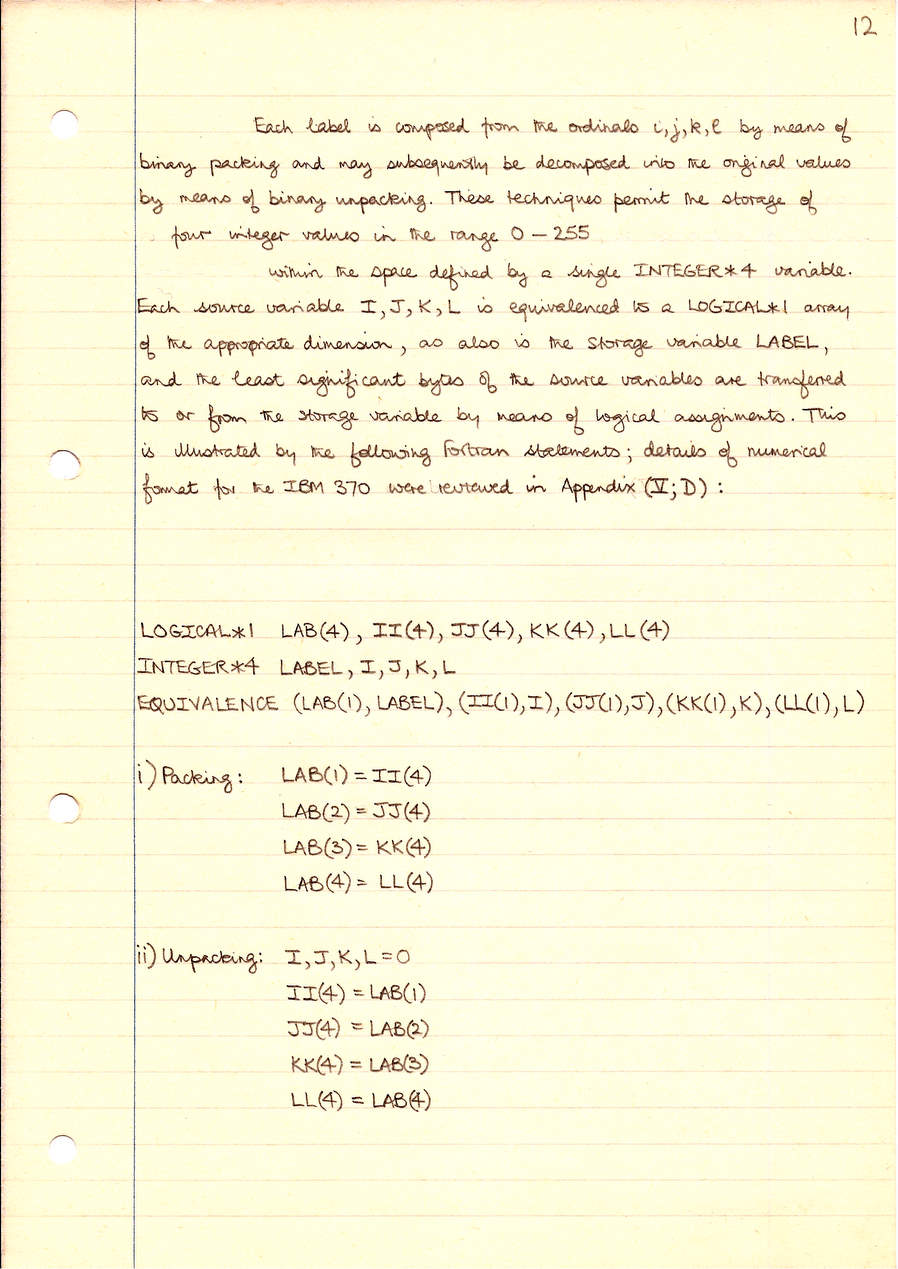 12
Each label is composed from the ordinals i, j, k, l by means of
binary packing and may subsequently be decomposed into the original values
by means of binary unpacking. These techniques permit the storage of
four integer values in the range 0 – 255
within the space defined by a single INTEGER*4 variable.
Each source variable I, J, K, L is equivalenced to a LOGICAL*1 array
of the appropriate dimension, as also is the storage variable LABEL,
and the least significant bytes of the source variables are transferred
to or from the storage variable by means of logical assignments. This
is illustrated by the following Fortran statements; details of numerical
format for the IBM 370 were reviewed in Appendix (V; D) :
LOGICAL*1 LAB(4), II(4), JJ(4), KK(4), LL(4)
INTEGER*4 LABEL, I, J, K, L
EQUIVALENCE (LAB(1), LABEL), (II(1), I), (JJ(1), J), (KK(1), K), (LL(1), L)
i) Packing: LAB(1) = II(4)
LAB(2) = JJ(4)
LAB(3) = KK(4)
LAB(4) = LL(4)
ii) Unpacking: I, J, K, L = 0
II(4) = LAB(1)
JJ(4) = LAB(2)
KK(4) = LAB(3)
LL(4) = LAB(4)